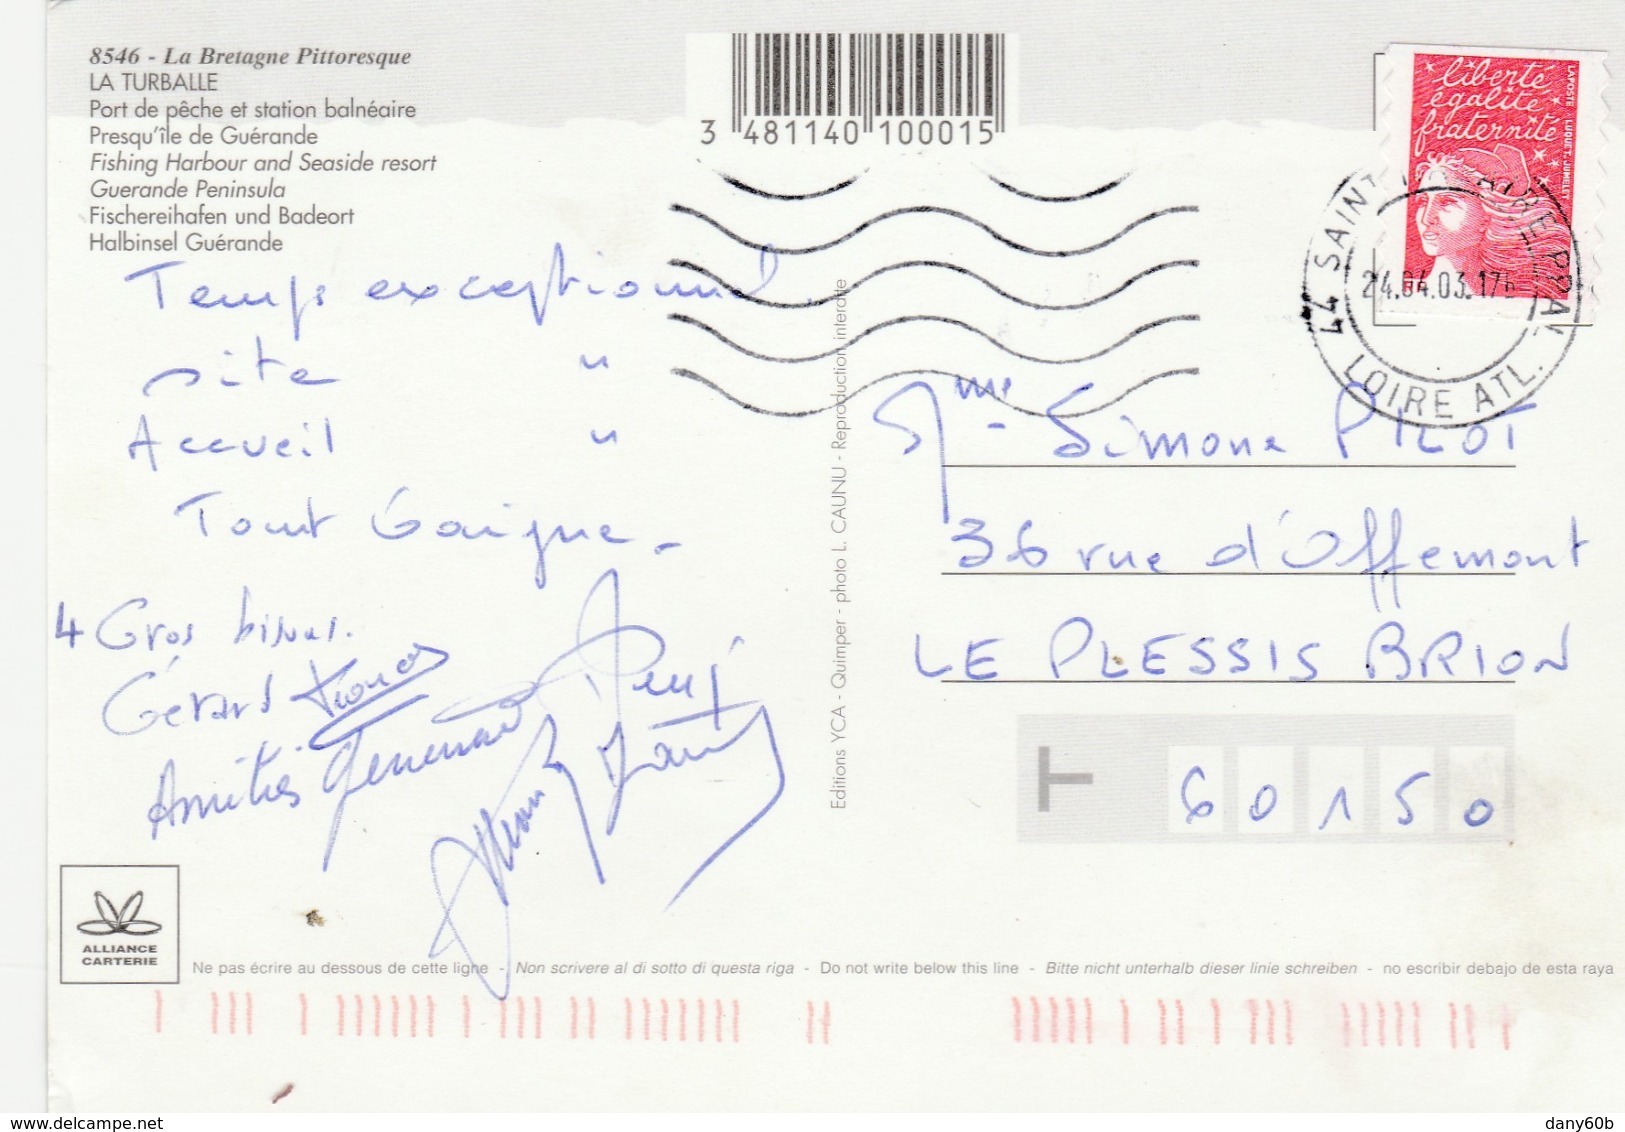 8546 - La Bretagne Pittoresque
LA TURBALLE
Port de pêche et station balnéaire
Presqu'île de Guérande
Fishing Harbour and Seaside resort
Guerande Peninsula
Fischereihafen und Badeort
Halbinsel Guérande
3 481140 100015
liberté
égalité
fraternité
LAPOSTE LUQUET. JUMELET
RF
44 SAINT
LOIRE ATL.
24.04.03.17
Temps exceptionnel.
site "
Accueil "
Tout baigne -
4 Gros bisous.
Gérard
Amitiés
Editions YCA - Quimper - photo L. CAUNU - Reproduction interdite
Mme Simone PILOT
36 rue d'Offemont
LE PLESSIS BRION
T
60150
ALLIANCE
CARTERIE
Ne pas écrire au dessous de cette ligne - Non scrivere al di sotto di questa riga - Do not write below this line - Bitte nicht unterhalb dieser linie schreiben - no escribir debajo de esta raya
dany60b